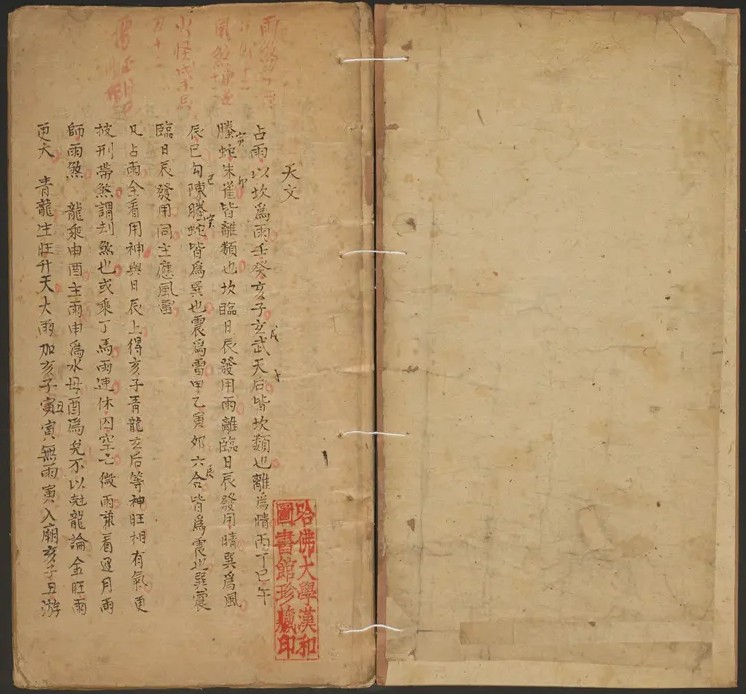 天文
占雨以坎為雨壬癸亥子玄武天后皆坎類也離為晴丙丁巳午
螣蛇朱雀皆離類也坎臨日辰發用雨離臨日辰發用晴巽為風
辰巳勾陳螣蛇皆為巽也震為雷甲乙寅卯六合皆為震也巽震
臨日辰發用同主應風雷
凡占雨全看用神與日辰上得亥子青龍玄后等神旺相有氣更
被刑帶煞謂刦煞也或乘丁馬雨速休囚空亡微雨兼看過月雨
師雨煞 龍乘申酉主雨申為水母酉為兌不以尅龍論金旺雨
更大 青龍生旺升天大雨加亥子寅丑寅無雨寅入廟亥子丑游
哈佛大學漢和
圖書館珍藏印